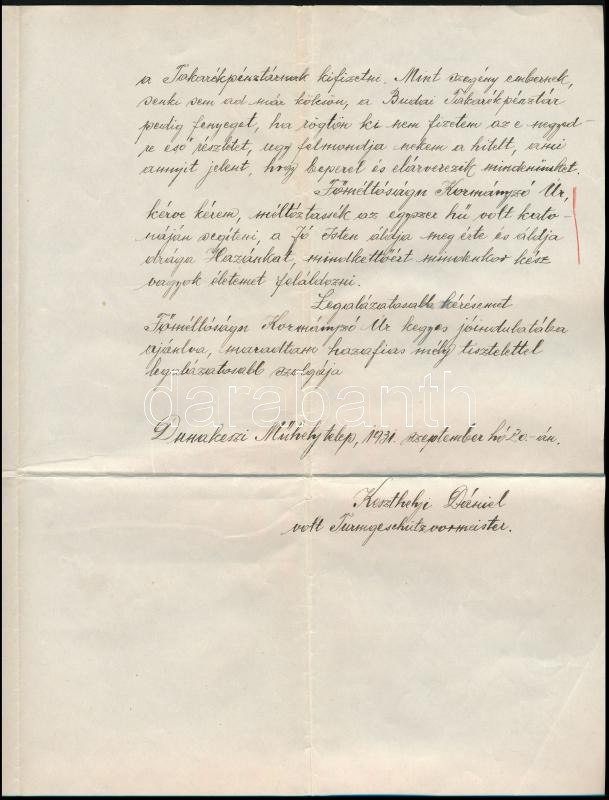 a Takarékpénztárnak kifizetni. Mint szegény embernek,
senki sem ad már kölcsön, a Budai Takarékpénztár
pedig fenyeget, ha rögtön ki nem fizetem az e negyed-
re eső részletet, ugy felmondja nekem a hitelt, ami
annyit jelent, hogy beperel és elárverezik mindenünket.
Főméltóságu Kormányzó Ur,
kérve kérem, méltóztassék az egyszer hű volt kato-
náján segíteni, a Jó Isten áldja meg érte és áldja
drága Hazánkat, mindkettőért mindenkor kész
vagyok életemet feláldozni.
Legalázatosabb kérésemet
Főméltóságu Kormányzó Ur kegyes jóindulatába
ajánlva, maradtam hazafias mély tisztelettel
legalázatosabb szolgája
darabanth
Dunakeszi Műhelytelep, 1931. szeptember hó 20.-án.
Keszthelyi Dániel
volt Turmgeschützvormeister.